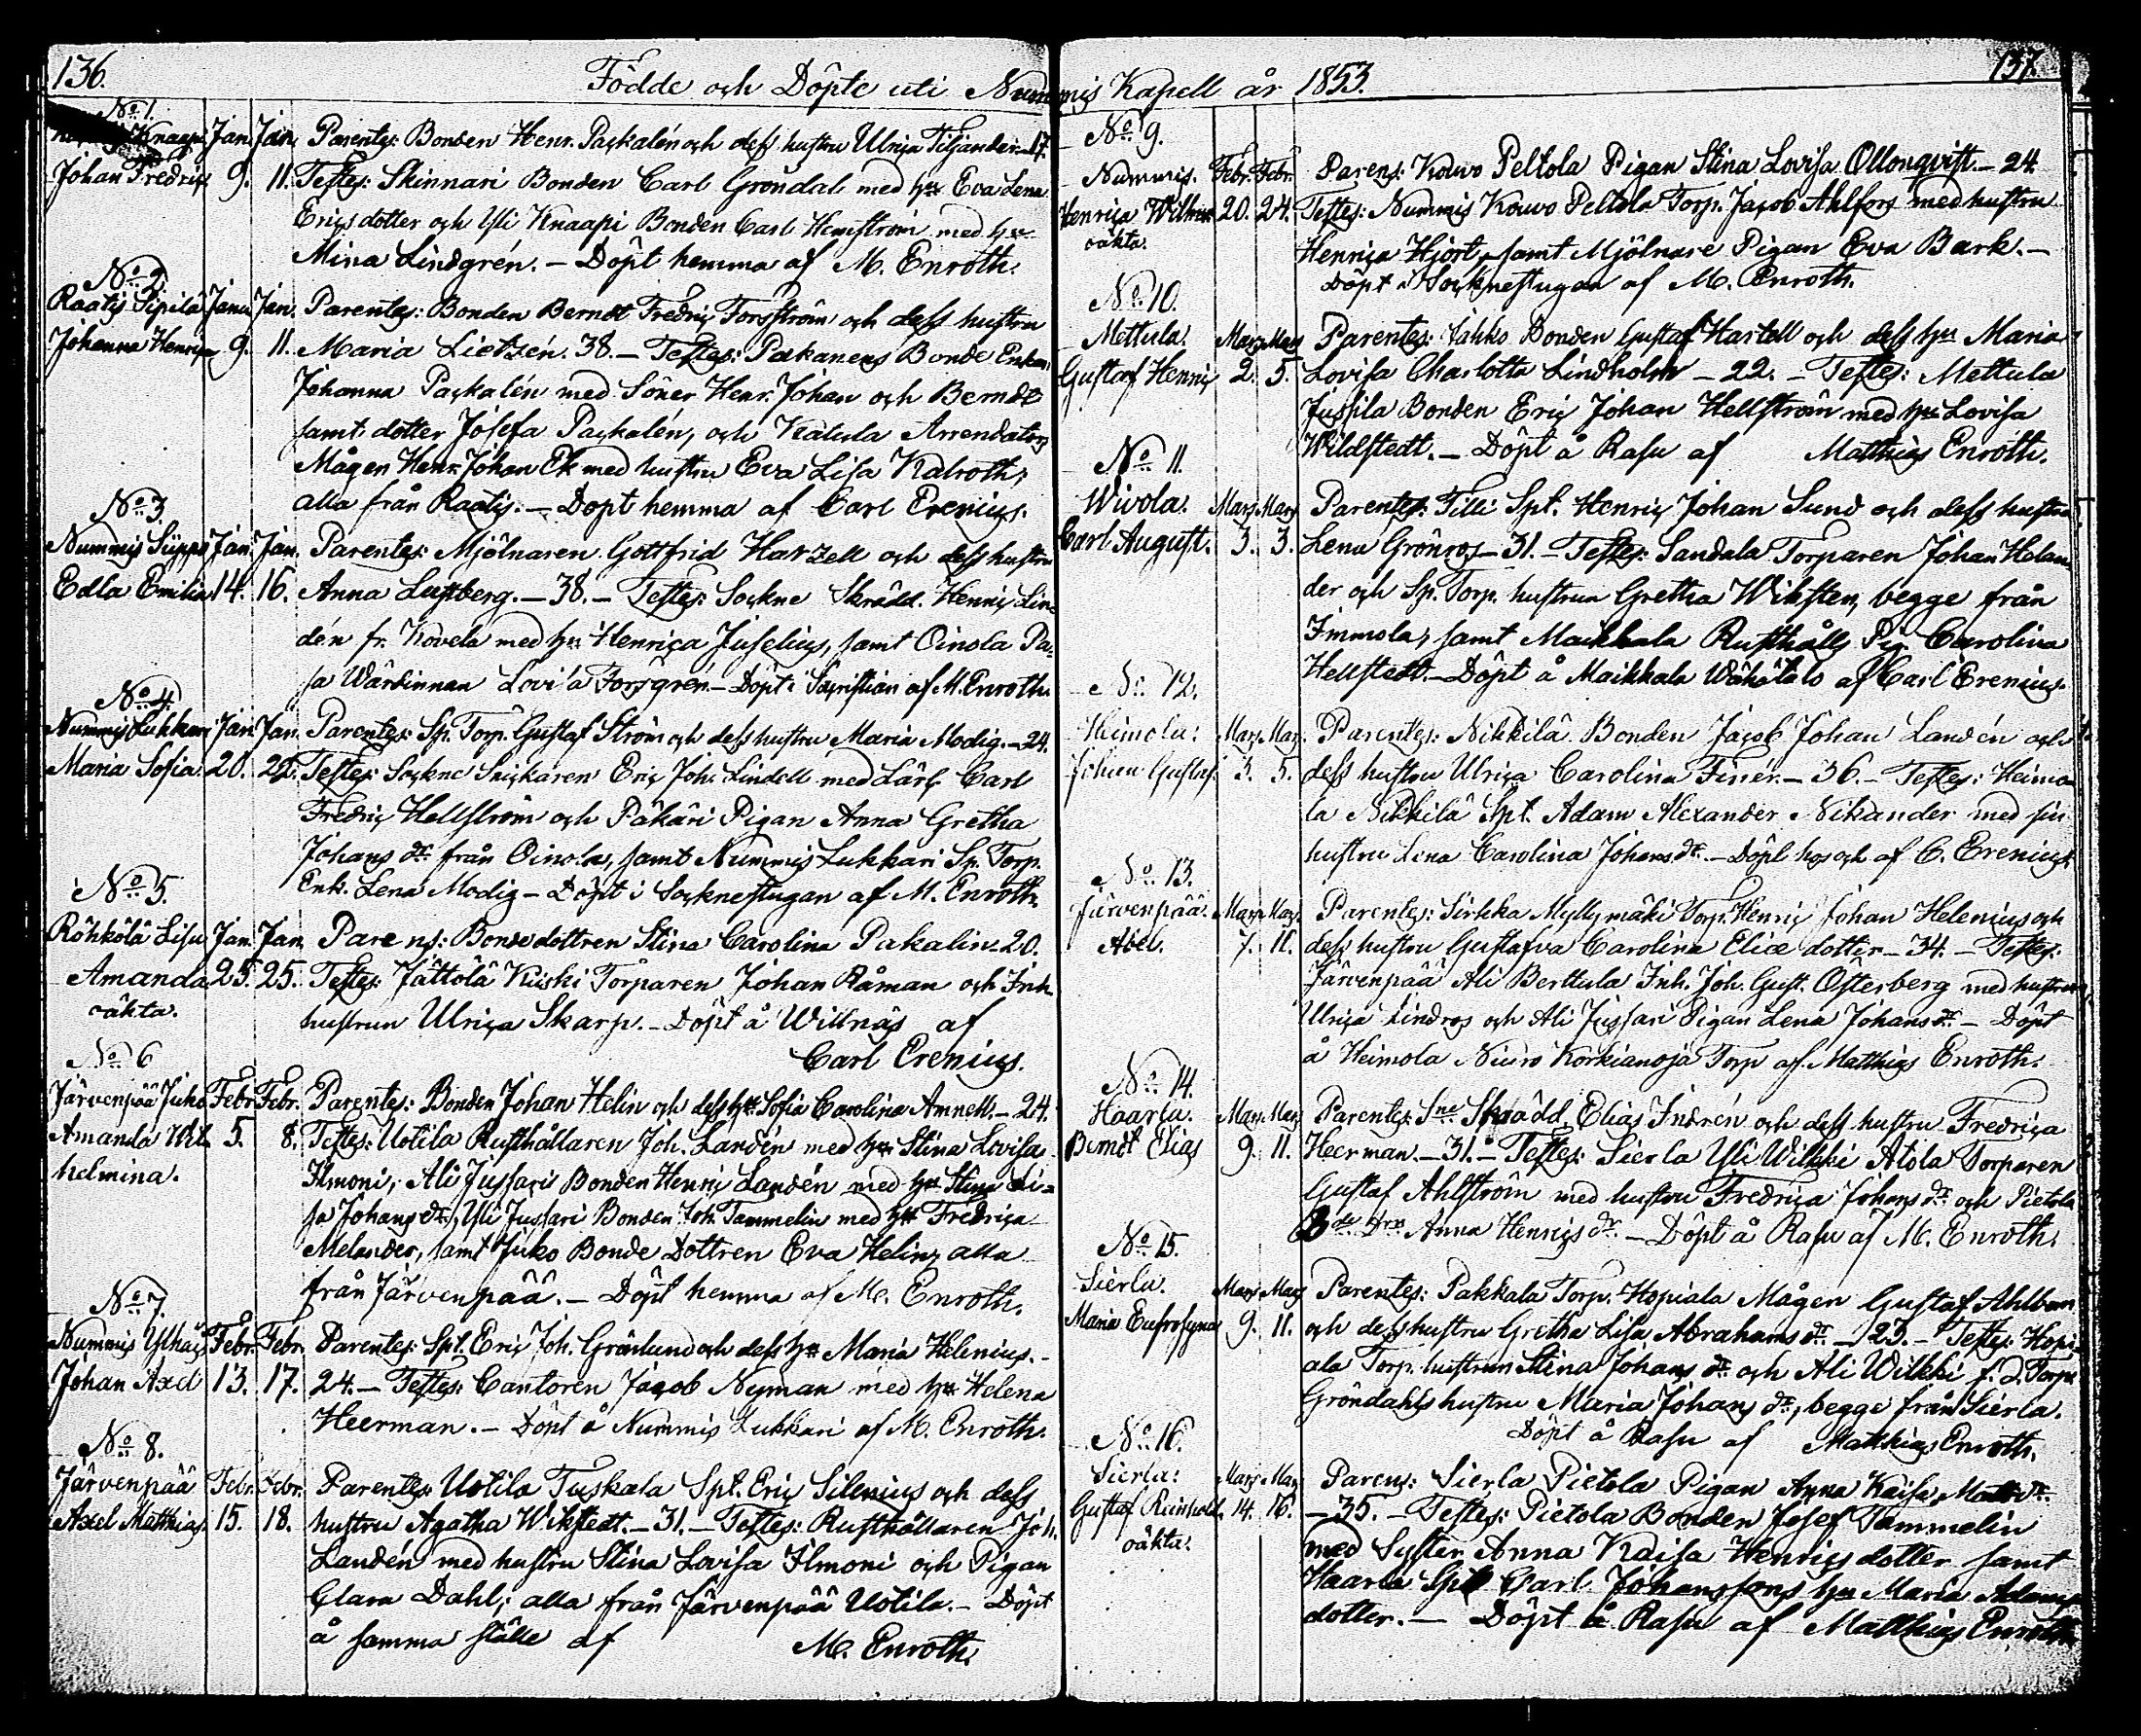 136.
Födde och Döpte uti Nummis Kapell år 1853.
137.
No 1.
Knaapi Jan. Jan. Parentes: Bonden Henr. Packalén och dess hustru Ulrica Tiljander.–17.
Johan Fredric 9. 11. Testes: Skinnari Bonden Carl Gröndal med hu Eva Lena
Ericsdotter och Yli Knaapi Bonden Carl Hemström med hu
Mina Lindgrén. – Döpt hemma af M. Enroth.
No 2.
Raatis Sipilä Janu. Jan. Parentes: Bonden Berndt Fredric Forsström och dess hustru
Johanna Henrica 9. 11. Maria Lietzén. 38. – Testes: Packanens Bonde Enkan
Johanna Packalén med Söner Henr. Johan och Berndt
samt dotter Josefa Packalén, och Katula Arrendators
Mågen Henr. Johan Ek med hustru Eva Lisa Kalroth;
alla från Raatis. – Döpt hemma af Carl Erenius.
No 3.
Nummis Siippo Jan. Jan. Parentes: Mjölnaren Gottfrid Harzell och dess hustru
Edla Emilia 14. 16. Anna Lustberg. – 38. – Testes: Sockne Skrädd. Henric Lin-
dén fr. Kovela med hu Henrica Juselius, samt Oinola Pa-
sa Wärdinnan Lovisa Forsgrén. – Döpt i Sacristian af M. Enroth.
No 4.
Nummis Lukkari Jan. Jan. Parentes: Sp. Torp. Gustaf Ström och dess hustru Maria Modig. – 24.
Maria Sofia 20. Testes: Sockne Snickaren Eric Joh. Lindell med Lärl. Carl
Fredric Hellström och Päkäri Pigan Anna Gretha
Johans dr från Oinola, samt Nummis Lukkari Sp. Torp.
Enk. Lena Modig – Döpt i Socknestugan af M. Enroth.
No 5.
Röhkölä Lisa Jan. Jan. Parens: Bondedottren Stina Carolina Pakalin. 20.
Amanda 25. 25. Testes: Jättölä Kuiski Torparen Johan Råman och Inh.
oäkta. hustrun Ulrica Skarp. – Döpt å Willnäs af
Carl Erenius.
No 6
Järvenpää Juko Febr. Febr. Parentes: Bonden Johan Helin och dess hu Sofia Carolina Amnell. – 24.
Amanda Wil- 5. 8. Testes: Uotila Rusthållaren Joh. Landén med hu Stina Lovisa
helmina. Ilmoni, Ali Jussari Bonden Henric Landén med hu Stina Li-
sa Johans dr, Yli Jussari Bonden Joh. Tammelin med hu Fredrica
Melander, samt Juko Bonde Dottren Eva Helin; alla
från Järvenpää. – Döpt hemma af M. Enroth.
No 7.
Nummis Febr. Febr. Parentes: Spt. Eric Joh. Grönlund och dess hu Maria Helenius. –
Johan Axel 13. 17. 24. – Testes: Cantoren Jacob Nyman med hu Helena
Heerman. – Döpt å Nummis Lukkari af M. Enroth.
No 8.
Järvenpää Febr. Febr. Parentes Uotila Tuskala Spt. Eric Silenius och dess
Axel Matthias. 15. 18. hustru Agatha Wikstedt. – 31. – Testes: Rusthållaren Joh.
Landén med hustru Stina Lovisa Ilmoni och Pigan
Clara Dahl; alla från Järvenpää Uotila. – Döpt
å samma ställe af M. Enroth.
No 9.
Nummis. Febr. Febr. Parens: Kouvo Peltola Pigan Stina Lovisa Ollonqvist. – 24.
Henrica Wilhm 20. 24. Testes: Nummis Kouvo Peltola Torp. Jacob Ahlfors med hustru
oäkta. Henrica Hjort, samt Mjölnare Pigan Eva Bark. –
Döpt i Socknestugan af M. Enroth.
No 10.
Mettula. Mars Mars Parentes: Jahko Bonden Gustaf Hartell och dess hu Maria
Gustaf Henric 2. 5. Lovisa Charlotta Lindholm – 22. – Testes: Mettula
Jussila Bonden Eric Johan Hellström med hu Lovisa
Wildstedt. – Döpt å Rasu af Matthias Enroth.
No 11.
Wivola. Mars Mars Parentes: Tilli Spt. Henric Johan Sund och dess hustru
Carl August. 3. 3. Lena Grönros – 31. – Testes: Sandala Torparen Johan Helan-
der och Sp. Torp. hustrun Gretha Wiksten, begge från
Immola, samt Maikkala Rusthålls Pig. Carolina
Hellstedt. – Döpt å Maikkala Wähätalo af Carl Erenius.
No 12.
Heimola. Mars Mars Parentes: Nikkilä Bonden Jacob Johan Landén och
Johan Gustaf 3. 5. dess hustru Ulrica Carolina Finér. – 36. – Testes: Heimo-
la Nikkilä Spt. Adam Alexander Nikander med sin
hustru Lena Carolina Johans dr. – Döpt hos och af C. Erenius.
No 13.
Järvenpää. Mars Mars Parentes: Sirkka Myllymäki Torp. Henric Johan Helenius och
Abel. 7. 11. dess hustru Gustafva Carolina Eliæ dotter – 34. – Testes:
Järvenpää Ali Berttula Inh. Joh. Gust. Österberg med hustrun
Ulrica Lindros och Ali Jussari Pigan Lena Johans dr – Döpt
å Heimola Niuro Korkianoja Torp af Matthias Enroth.
No 14.
Haarla. Mars Mars Parentes: Sne Skrädd. Elias Indrén och dess hustru Fredrica
Berndt Elias 9. 11. Heerman. – 31. – Testes: Sierla Yli Wilkki Atola Torparen
Gustaf Ahlström med hustru Fredrica Johans dr och Pietola
Bde Drn Anna Henrics dr. – Döpt å Rasu af M. Enroth.
No 15.
Sierla. Mars Mars Parentes: Pakkala Torp. Hopiala Mågen Gustaf Ahlbom
Maria Eufrosyna 9. 11. och dess hustru Gretha Lisa Abrahams dr – 23. – Testes: Hopi-
ala Torp. hustrun Stina Johans dr och Ali Wilkki f. d. Torp.
Gröndahls hustru Maria Johans dr, begge från Sierla.
Döpt å Rasu af Matthias Enroth.
No 16.
Sierla: Mars Mars Parens: Sierla Pietola Pigan Anna Kaisa Matts dr.
Gustaf Reinhold. 14. 16. – 35. – Testes: Pietola Bonden Josef Tammelin
oäkta. med Syster Anna Kaisa Henrics dotter samt
Haarla Spt Carl Johanssons hu Maria Adams
dotter. – Döpt å Rasu af Matthias Enroth